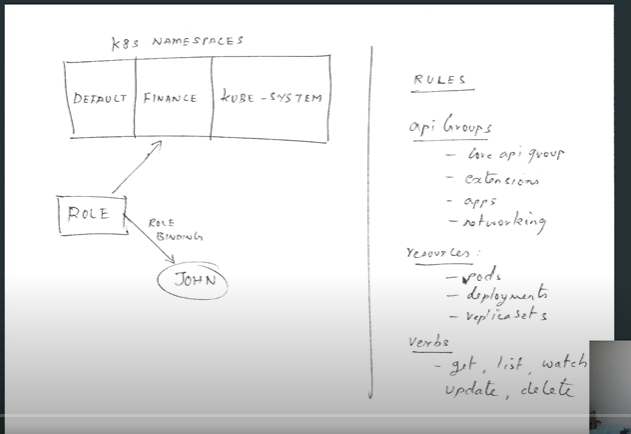 K8S NAMESPACES
DEFAULT FINANCE KUBE-SYSTEM
ROLE
ROLE
BINDING
JOHN
RULES
api Groups
- core api group
- extensions
- apps
- networking
resources:
- pods
- deployments
- replicasets
verbs
- get, list, watch
update, delete